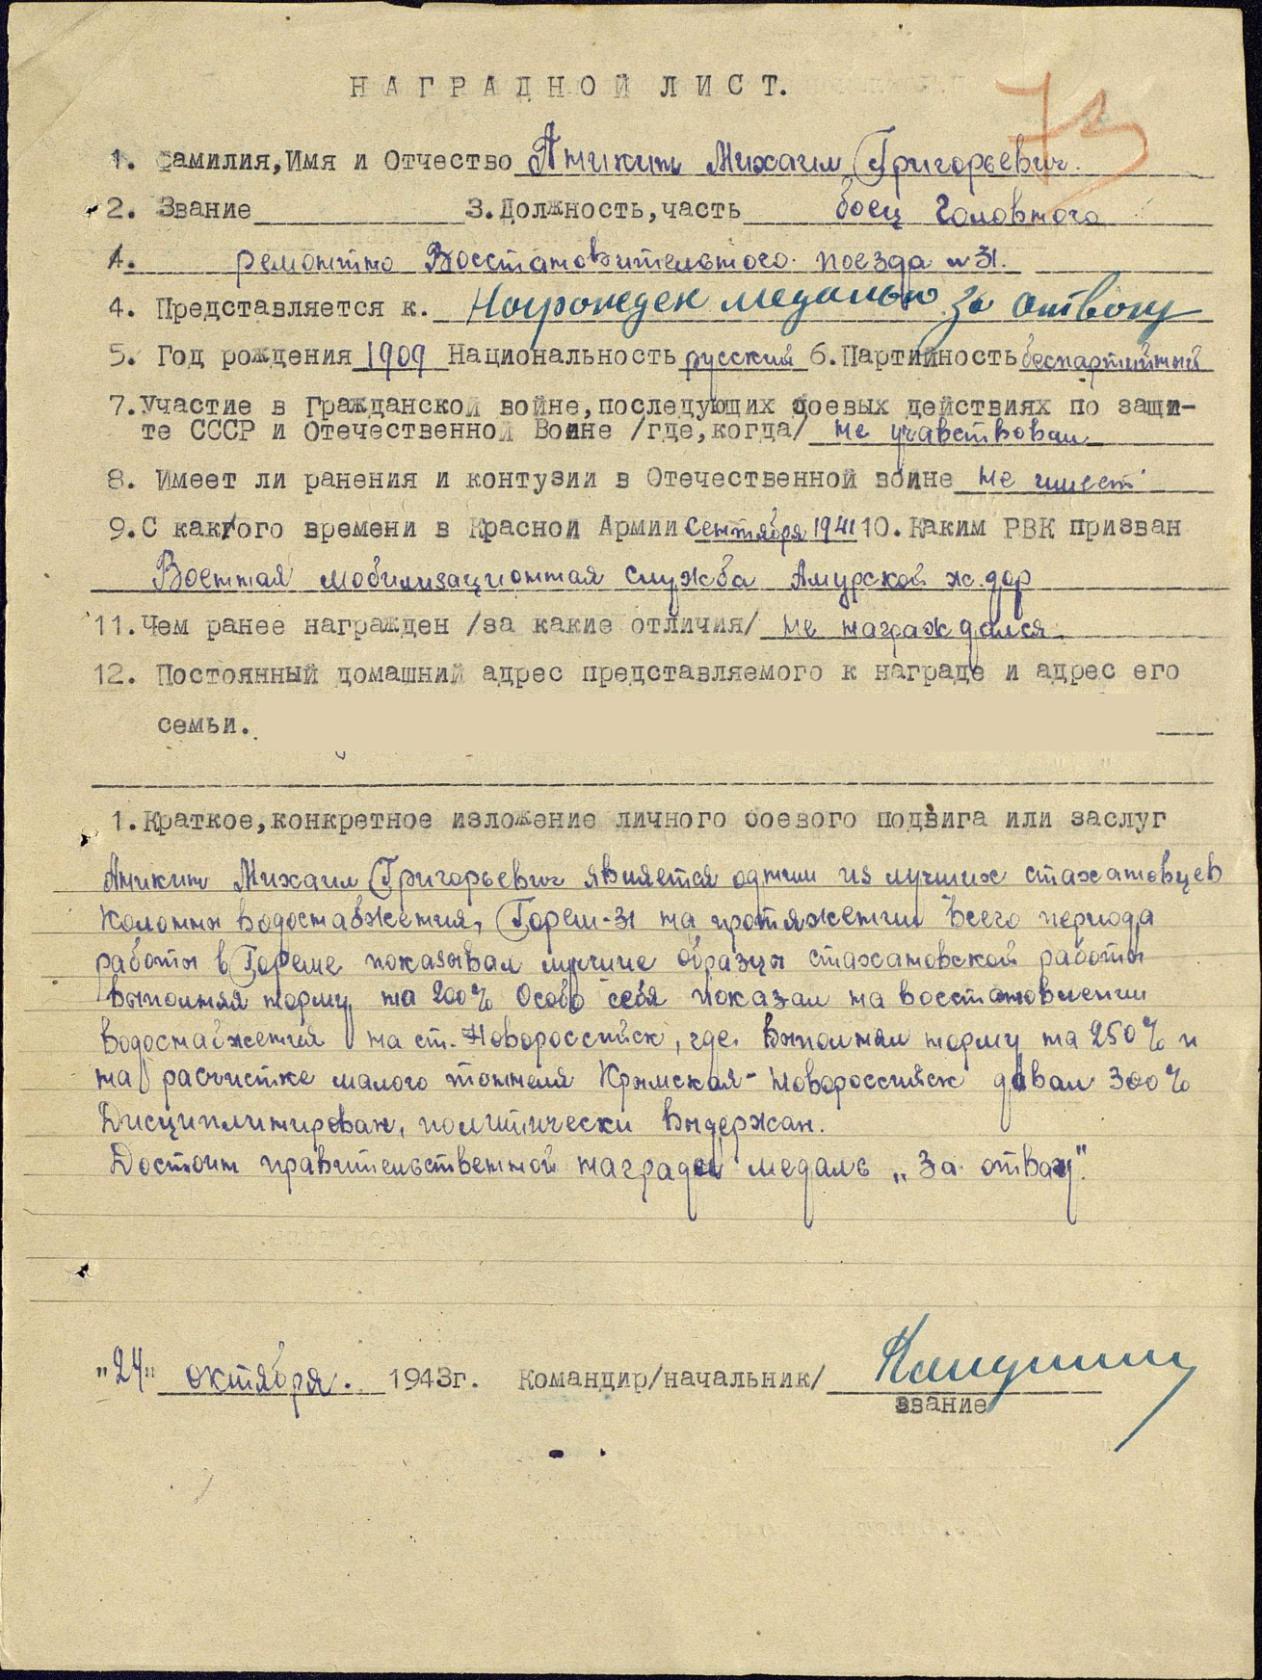 НАГРАДНОЙ ЛИСТ.
73
1. Фамилия,Имя и Отчество Аникин Михаил Григорьевич.
2. Звание 3.Должность,часть боец Головного
А. ремонтно Восстановительного поезда №31.
4. Представляется к. Награжден медалью за отвагу
5. Год рождения 1909 Национальность русский 6.Партийность беспартийный
7.Участие в Гражданской войне,последующих боевых действиях по защи-
те СССР и Отечественной Воине /где,когда/ не учавствовал
8. Имеет ли ранения и контузии в Отечественной войне не имеет
9.С какого времени в Красной Армии Сентября 1941 10.Каким РВК призван
Военная мобилизационная служба Амурской ж.дор
11.Чем ранее награжден /за какие отличия/ не награждался
12. Постоянный домашний адрес представляемого к награде и адрес его
семьи.
1.Краткое,конкретное изложение личного боевого подвига или заслуг
Аникин Михаил Григорьевич является одним из лучших стахановцев
Колонны Водоснабжения, Горем-31 на протяжении всего периода
работы в Гореме показывал лучшие образцы стахановской работы
выполняя норму на 200% Особо себя показал на восстановлении
водоснабжения на ст. Новороссийск, где выполнял норму на 250% и
на расчистке малого тоннеля Крымская-Новороссийск давал 300%
Дисциплинирован, политически выдержан.
Достоин правительственной награды медаль „За отвагу".
"24" октября. 1943г. Командир/начальник/
звание